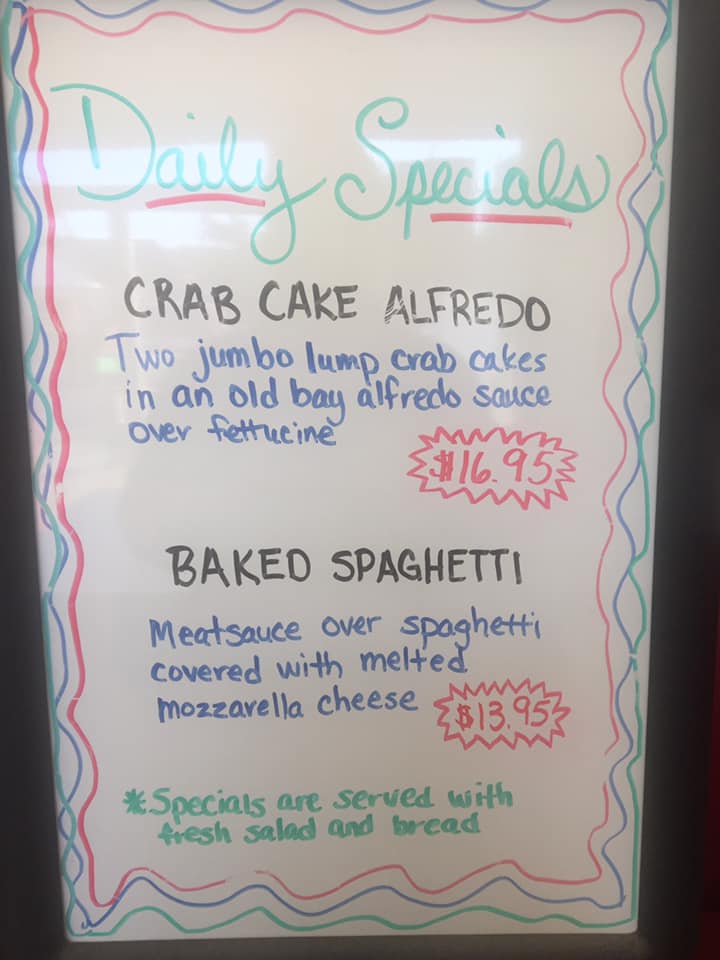 Daily Specials
CRAB CAKE ALFREDO
Two jumbo lump crab cakes
in an old bay alfredo sauce
over fettucine
$16.95
BAKED SPAGHETTI
Meatsauce over spaghetti
covered with melted
mozzarella cheese
$13.95
*Specials are served with
fresh salad and bread